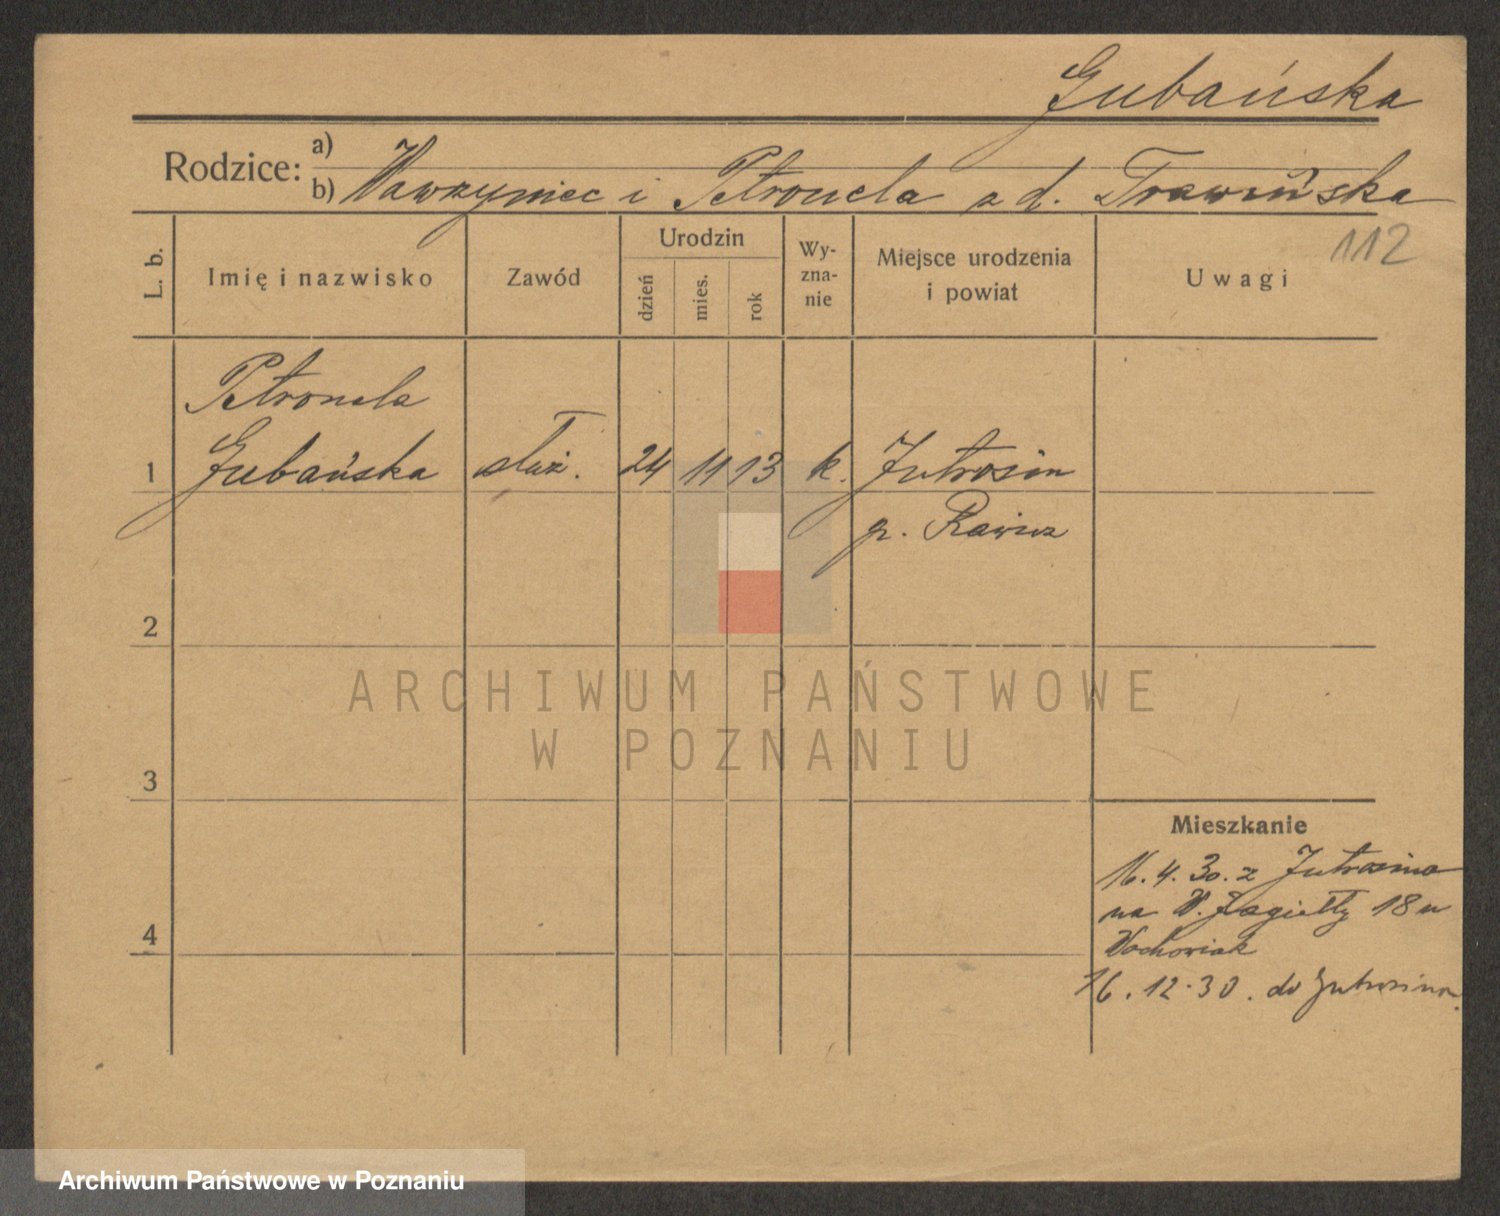 Gubańska
Rodzice: a)
b) Wawrzyniec i Petronela z d. Trawińska
112
L. b.
Imię i nazwisko
Zawód
Urodzin
dzień
mies.
rok
Wy-
zna-
nie
Miejsce urodzenia
i powiat
Uwagi
Petronela
1 Gubańska służ. 24 11 13 k. Jutrosin
p. Rawicz
2
3
4
Mieszkanie
16. 4. 30. z Jutrosina
na W. Jagiełły 18 u
Wochowiak
16. 12. 30. do Jutrosina.
ARCHIWUM PAŃSTWOWE
W POZNANIU
Archiwum Państwowe w Poznaniu